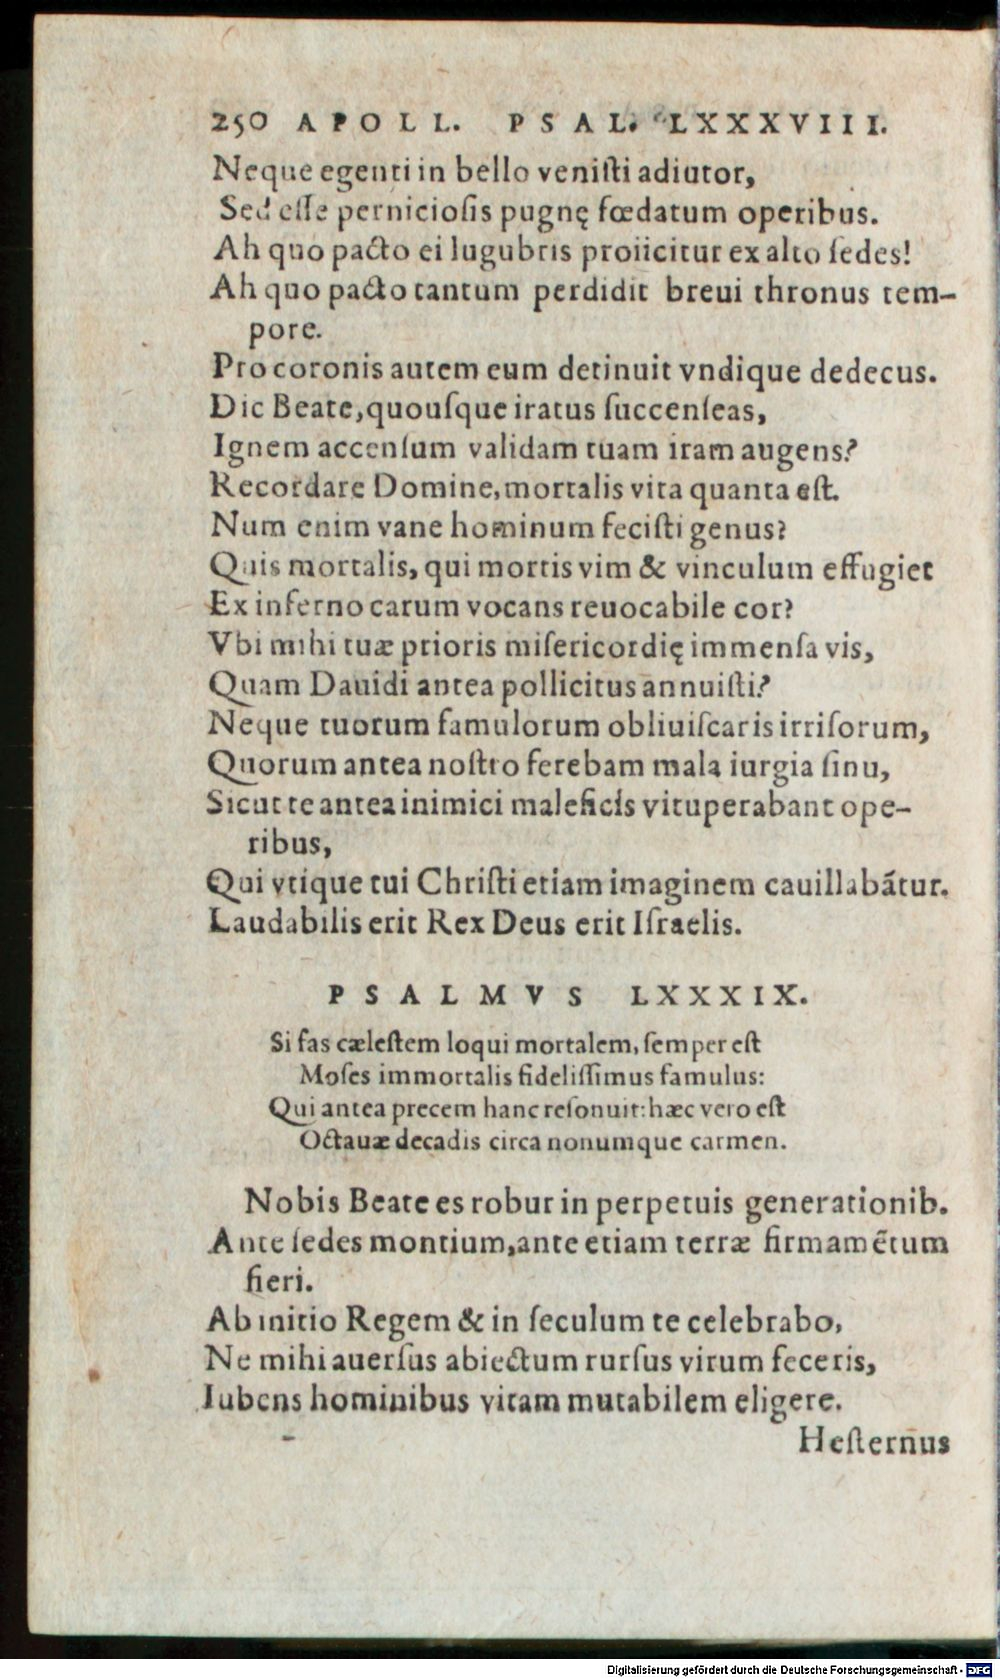 250 APOLL. PSAL. LXXXVIII.
Neque egenti in bello veniſti adiutor,
Sed eſſe pernicioſis pugnę fœdatum operibus.
Ah quo pacto ei lugubris proiicitur ex alto ſedes!
Ah quo pacto tantum perdidit breui thronus tem-
pore.
Pro coronis autem eum detinuit vndique dedecus.
Dic Beate, quouſque iratus ſuccenſeas,
Ignem accenſum validam tuam iram augens?
Recordare Domine, mortalis vita quanta eſt.
Num enim vane hominum feciſti genus?
Quis mortalis, qui mortis vim & vinculum effugiet
Ex inferno carum vocans reuocabile cor?
Vbi mihi tuæ prioris miſericordię immenſa vis,
Quam Dauidi antea pollicitus annuiſti?
Neque tuorum famulorum obliuiſcaris irriſorum,
Quorum antea noſtro ferebam mala iurgia ſinu,
Sicut te antea inimici maleficis vituperabant ope-
ribus,
Qui vtique tui Chriſti etiam imaginem cauillabātur.
Laudabilis erit Rex Deus erit Iſraelis.
PSALMVS LXXXIX.
Si fas cæleſtem loqui mortalem, ſemper eſt
Moſes immortalis fideliſſimus famulus:
Qui antea precem hanc reſonuit: hæc vero eſt
Octauæ decadis circa nonumque carmen.
Nobis Beate es robur in perpetuis generationib.
Ante ſedes montium, ante etiam terræ firmamētum
fieri.
Ab initio Regem & in ſeculum te celebrabo,
Ne mihi auerſus abiectum rurſus virum feceris,
Iubens hominibus vitam mutabilem eligere.
Heſternus
Digitalisierung gefördert durch die Deutsche Forschungsgemeinschaft - DFG